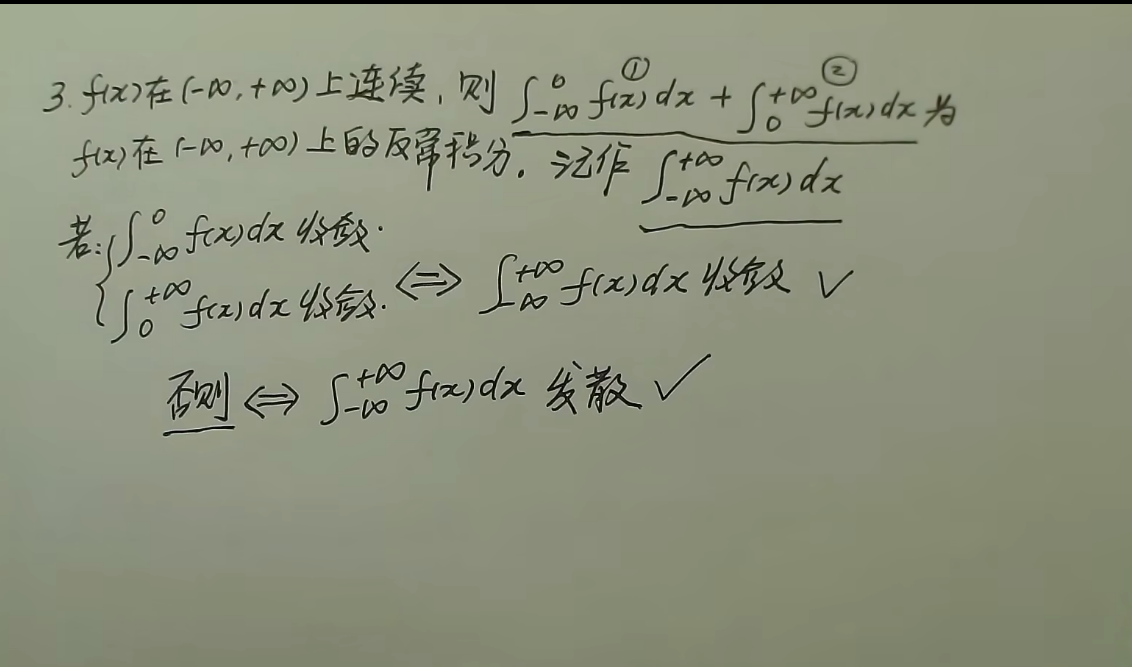 3. f(x)在(-∞,+∞)上连续,则 ∫_{-∞}^{0} f(x)dx ① + ∫_{0}^{+∞} f(x)dx ② 为
f(x)在(-∞,+∞)上的反常积分. 记作 ∫_{-∞}^{+∞} f(x)dx
若: { ∫_{-∞}^{0} f(x)dx 收敛.
∫_{0}^{+∞} f(x)dx 收敛. ⇔ ∫_{-∞}^{+∞} f(x)dx 收敛 ✓
否则 ⇔ ∫_{-∞}^{+∞} f(x)dx 发散 ✓